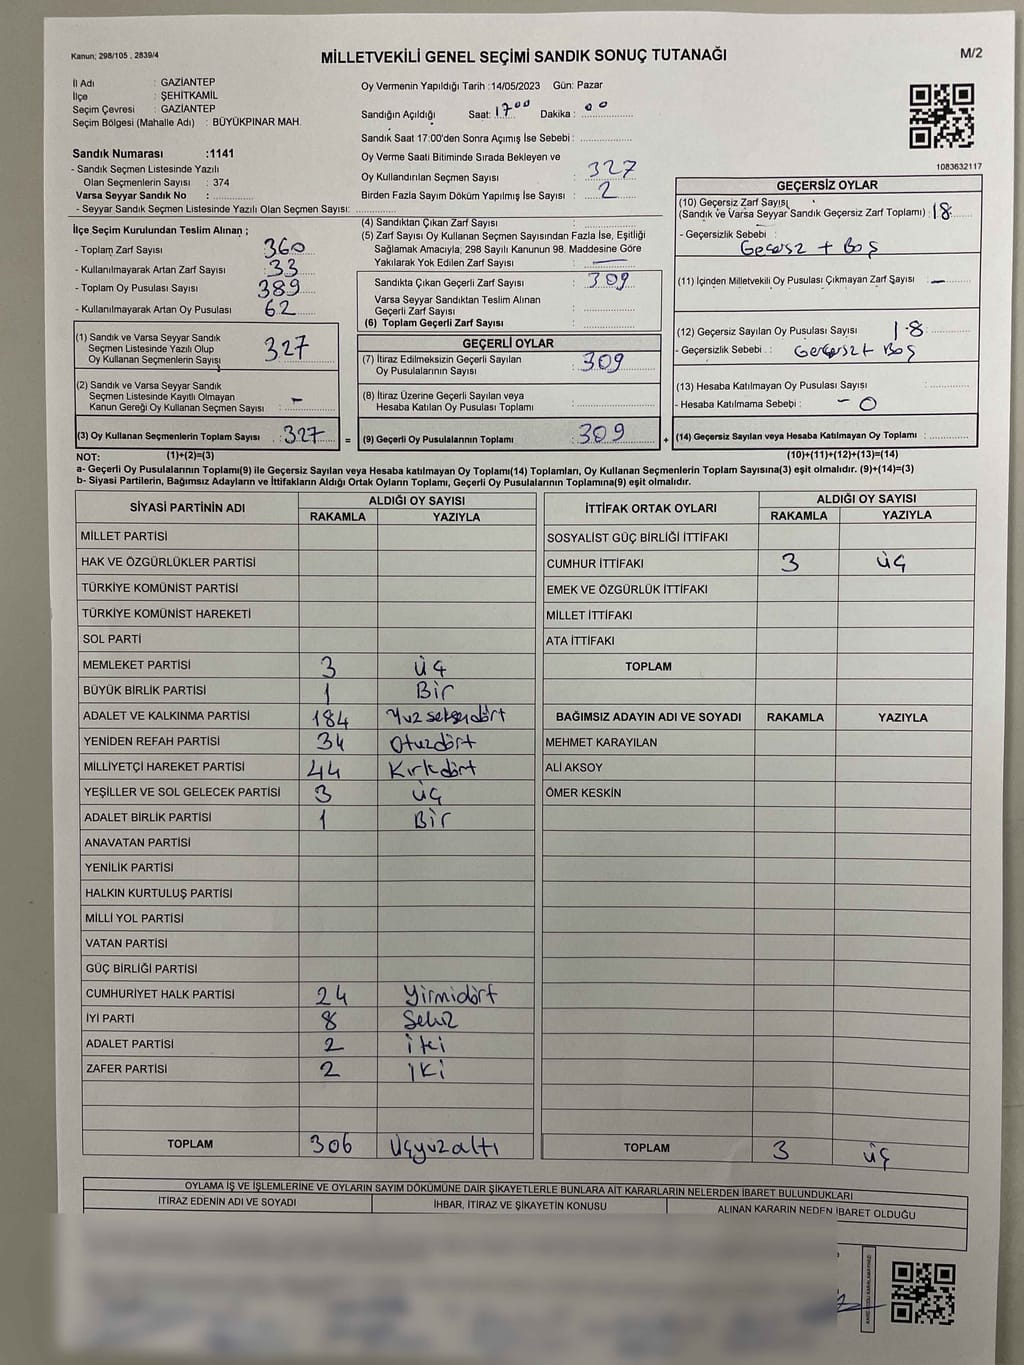 Kanun; 298/105 , 2839/4
MİLLETVEKİLİ GENEL SEÇİMİ SANDIK SONUÇ TUTANAĞI
M/2
İl Adı : GAZİANTEP
İlçe : ŞEHİTKAMİL
Seçim Çevresi : GAZİANTEP
Seçim Bölgesi (Mahalle Adı) : BÜYÜKPINAR MAH.
Sandık Numarası :1141
- Sandık Seçmen Listesinde Yazılı
Olan Seçmenlerin Sayısı : 374
Varsa Seyyar Sandık No :
- Seyyar Sandık Seçmen Listesinde Yazılı Olan Seçmen Sayısı:
Oy Vermenin Yapıldığı Tarih :14/05/2023 Gün: Pazar
Sandığın Açıldığı Saat: 17 00 Dakika : 00
Sandık Saat 17:00'den Sonra Açımış İse Sebebi :
Oy Verme Saati Bitiminde Sırada Bekleyen ve
Oy Kullandırılan Seçmen Sayısı : 327
Birden Fazla Sayım Döküm Yapılmış İse Sayısı : 2
1083632117
İlçe Seçim Kurulundan Teslim Alınan ;
- Toplam Zarf Sayısı : 360
- Kullanılmayarak Artan Zarf Sayısı : 33
- Toplam Oy Pusulası Sayısı : 389
- Kullanılmayarak Artan Oy Pusulası : 62
(1) Sandık ve Varsa Seyyar Sandık
Seçmen Listesinde Yazılı Olup
Oy Kullanan Seçmenlerin Sayışı : 327
(2) Sandık ve Varsa Seyyar Sandık
Seçmen Listesinde Kayıtlı Olmayan
Kanun Gereği Oy Kullanan Seçmen Sayısı : -
(3) Oy Kullanan Seçmenlerin Toplam Sayısı : 327 =
(4) Sandıktan Çıkan Zarf Sayısı :
(5) Zarf Sayısı Oy Kullanan Seçmen Sayısından Fazla İse, Eşitliği
Sağlamak Amacıyla, 298 Sayılı Kanunun 98. Maddesine Göre
Yakılarak Yok Edilen Zarf Sayısı : —
Sandıkta Çıkan Geçerli Zarf Sayısı : 309
Varsa Seyyar Sandıktan Teslim Alınan
Geçerli Zarf Sayısı :
(6) Toplam Geçerli Zarf Sayısı :
GEÇERLİ OYLAR
(7) İtiraz Edilmeksizin Geçerli Sayılan
Oy Pusulalarının Sayısı : 309
(8) İtiraz Üzerine Geçerli Sayılan veya
Hesaba Katılan Oy Pusulası Toplamı :
(9) Geçerli Oy Pusulalarının Toplamı : 309 +
GEÇERSİZ OYLAR
(10) Geçersiz Zarf Sayısı
(Sandık ve Varsa Seyyar Sandık Geçersiz Zarf Toplamı) : 18
- Geçersizlik Sebebi :
Geçersz + Boş
(11) İçinden Milletvekili Oy Pusulası Çıkmayan Zarf Sayısı : —
(12) Geçersiz Sayılan Oy Pusulası Sayısı : 18
- Geçersizlik Sebebi : + Boş
(13) Hesaba Katılmayan Oy Pusulası Sayısı :
- Hesaba Katılmama Sebebi : - 0
(14) Geçersiz Sayılan veya Hesaba Katılmayan Oy Toplamı :
NOT: (1)+(2)=(3) (10)+(11)+(12)+(13)=(14)
a- Geçerli Oy Pusulalarının Toplamı(9) ile Geçersiz Sayılan veya Hesaba katılmayan Oy Toplamı(14) Toplamları, Oy Kullanan Seçmenlerin Toplam Sayısına(3) eşit olmalıdır. (9)+(14)=(3)
b- Siyasi Partilerin, Bağımsız Adayların ve İttifakların Aldığı Ortak Oyların Toplamı, Geçerli Oy Pusulalarının Toplamına(9) eşit olmalıdır.
SİYASİ PARTİNİN ADI ALDIĞI OY SAYISI
RAKAMLA YAZIYLA
MİLLET PARTİSİ
HAK VE ÖZGÜRLÜKLER PARTİSİ
TÜRKİYE KOMÜNİST PARTİSİ
TÜRKİYE KOMÜNİST HAREKETİ
SOL PARTİ
MEMLEKET PARTİSİ 3 Üç
BÜYÜK BİRLİK PARTİSİ 1 Bir
ADALET VE KALKINMA PARTİSİ 184 Yuz seksendört
YENİDEN REFAH PARTİSİ 34 Otuzdört
MİLLİYETÇİ HAREKET PARTİSİ 44 Kırkdört
YEŞİLLER VE SOL GELECEK PARTİSİ 3 Üç
ADALET BİRLİK PARTİSİ 1 Bir
ANAVATAN PARTİSİ
YENİLİK PARTİSİ
HALKIN KURTULUŞ PARTİSİ
MİLLİ YOL PARTİSİ
VATAN PARTİSİ
GÜÇ BİRLİĞİ PARTİSİ
CUMHURİYET HALK PARTİSİ 24 Yirmidört
İYİ PARTİ 8 Sekiz
ADALET PARTİSİ 2 İki
ZAFER PARTİSİ 2 İKİ
TOPLAM 306 Üçyuzaltı
İTTİFAK ORTAK OYLARI ALDIĞI OY SAYISI
RAKAMLA YAZIYLA
SOSYALİST GÜÇ BİRLİĞİ İTTİFAKI
CUMHUR İTTİFAKI 3 Üç
EMEK VE ÖZGÜRLÜK İTTİFAKI
MİLLET İTTİFAKI
ATA İTTİFAKI
TOPLAM
BAĞIMSIZ ADAYIN ADI VE SOYADI RAKAMLA YAZIYLA
MEHMET KARAYILAN
ALİ AKSOY
ÖMER KESKİN
TOPLAM 3 üç
OYLAMA İŞ VE İŞLEMLERİNE VE OYLARIN SAYIM DÖKÜMÜNE DAİR ŞİKAYETLERLE BUNLARA AİT KARARLARIN NELERDEN İBARET BULUNDUKLARI
İTİRAZ EDENİN ADI VE SOYADI İHBAR, İTİRAZ VE ŞİKAYETİN KONUSU ALINAN KARARIN NEDEN İBARET OLDUĞU